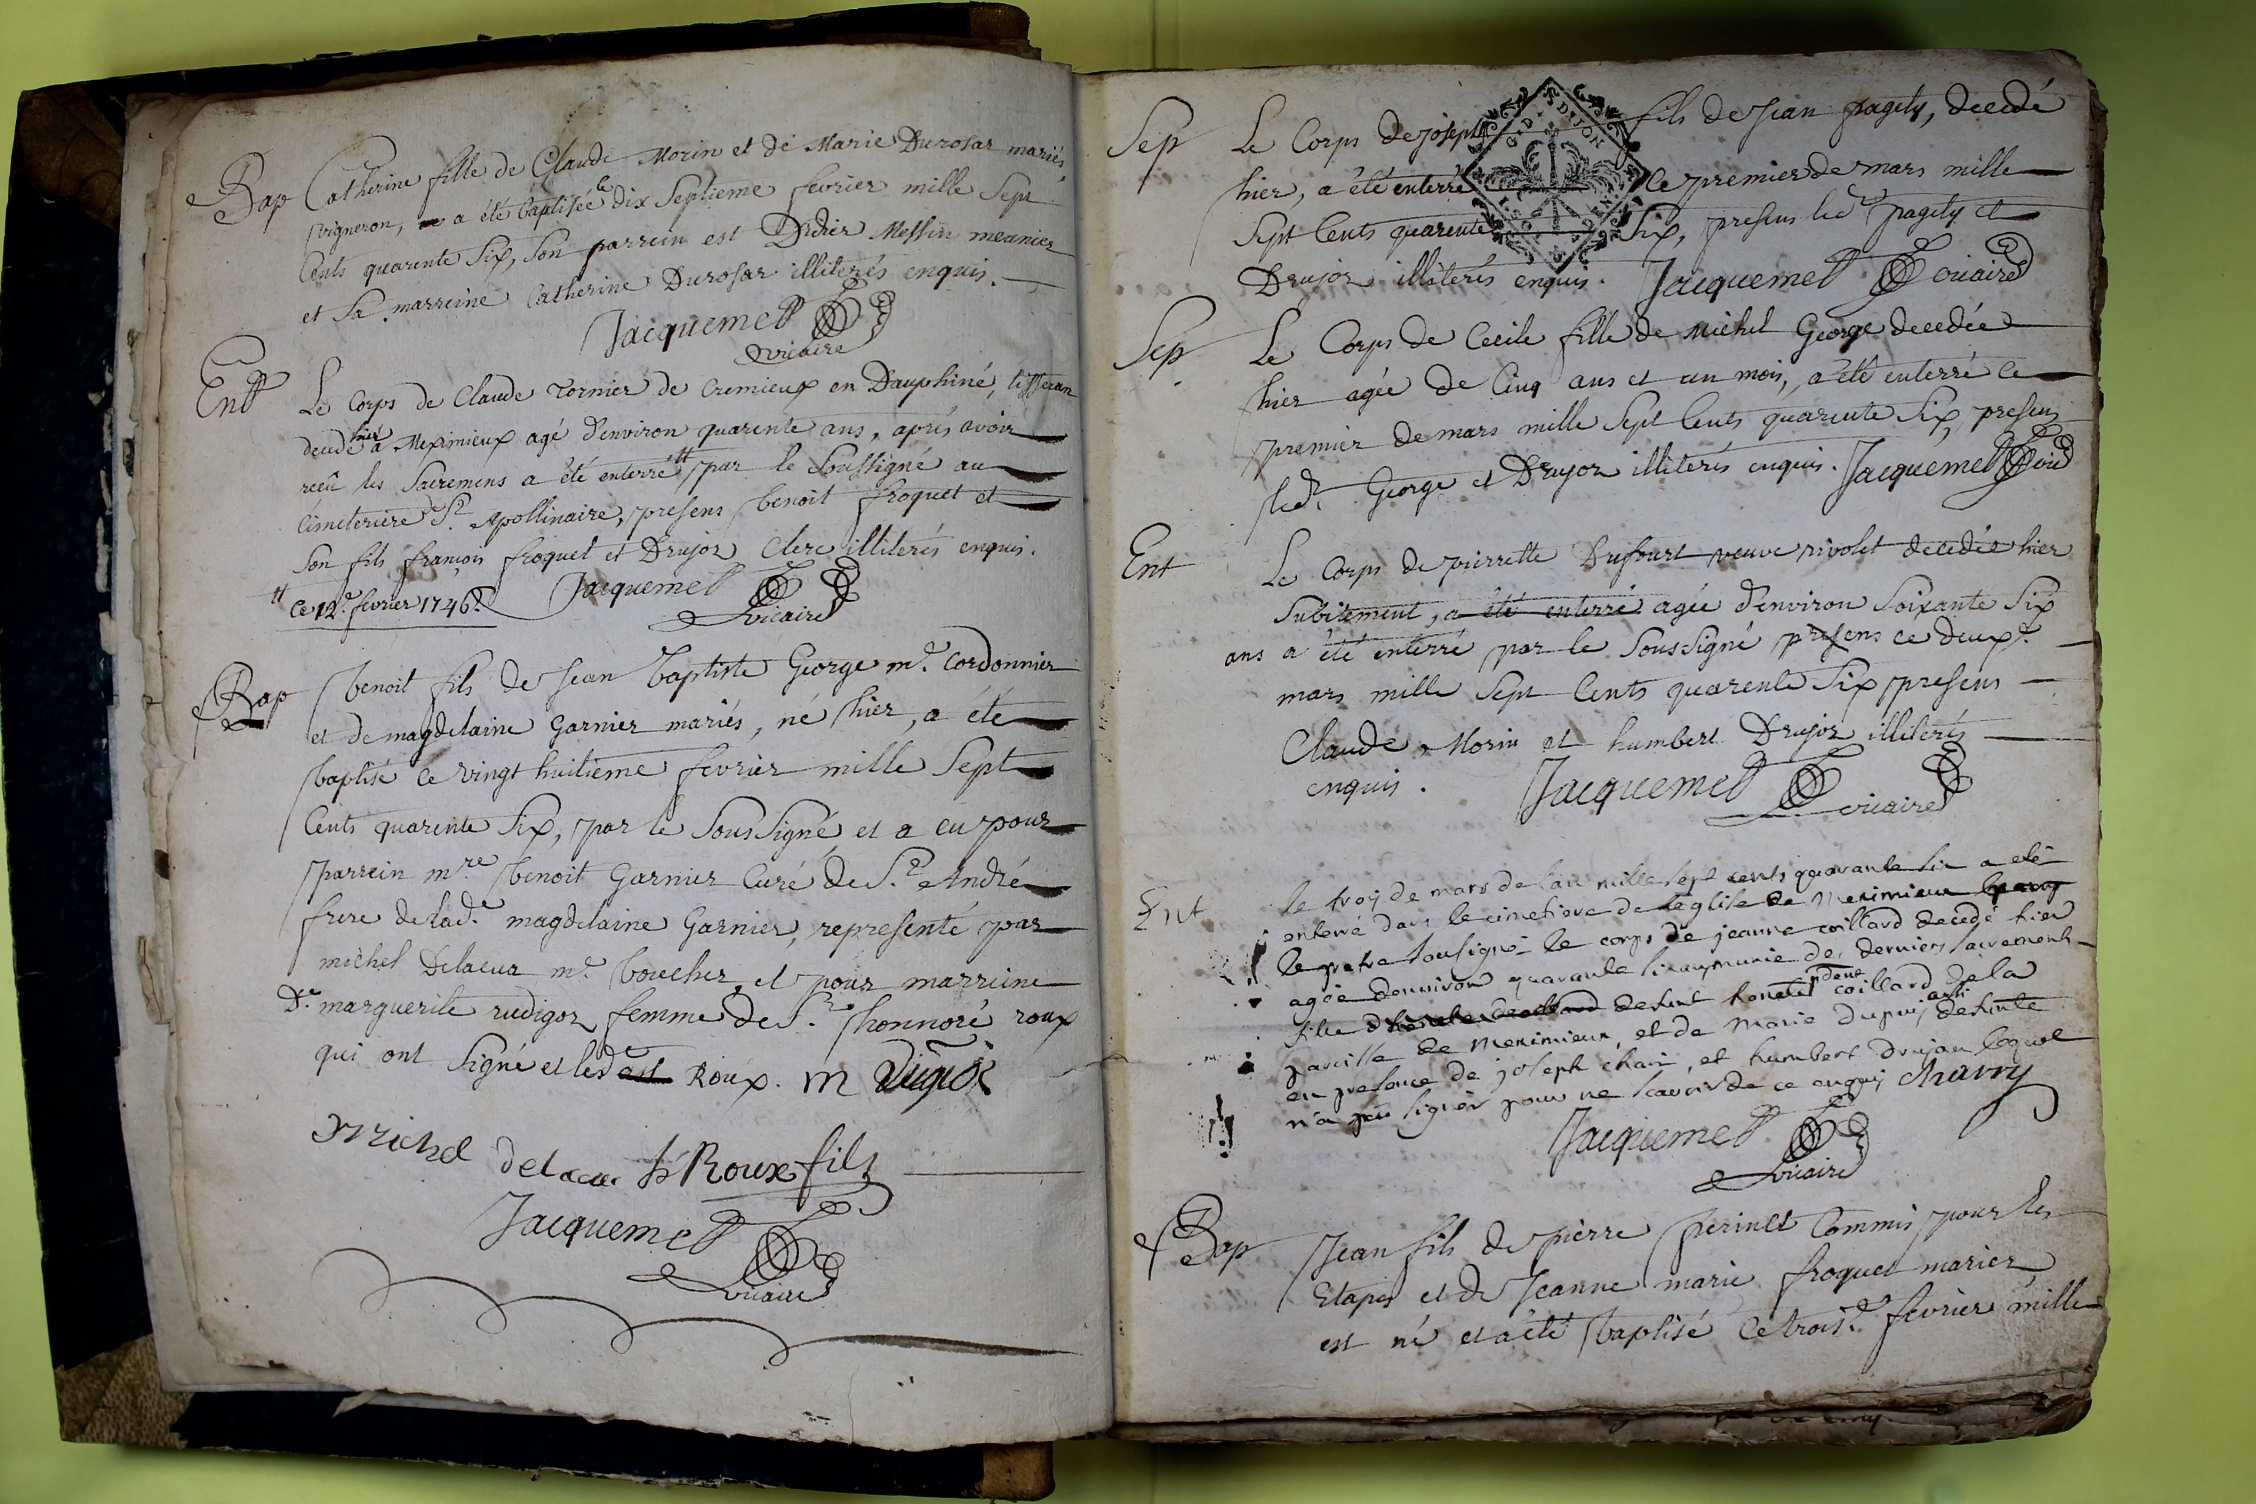 Bap Catherine fille de Claude Morin et de Marie Durosar mariés
vigneron, a été baptisée le dix Septieme fevrier mille Sept
Cents quarente Six, Son parrein est Didier Messin meunier
et Sa marreine Catherine Durosar illiterés enquis.
Jacquemet
vicaire
Ent Le Corps de Claude Tornier de Cremieux en Dauphiné, tisseran
decedé hier a Meximieux agé d'environ quarente ans, aprés avoir
recû les Sacremens a été enterré # par le Soussigné au
Cimeteriere St. Apollinaire, presens benoit froquet et
Son fils françois froquet et Drujor Clerc illiterés enquis.
# Ce 12e. fevrier 1746. Jacquemet
vicaire
Bap benoit fils de Jean baptiste George me. Cordonnier
et de magdelaine Garnier mariés, né hier, a été
baptisé Ce vingt huitieme fevrier mille Sept
Cents quarente Six, par le SousSigné et a eu pour
parrein mre. benoit Garnier Curé de St. André
frere de lade. magdelaine Garnier, representé par
michel Delacua me. boucher, et pour marreine
De. marguerite rudigoz femme de Sr. honnoré roux
qui ont Signé et led Roux. M Digoz
Michel delacua h Roux fils
Jacquemet
vicaire
Sep Le Corps de joseph fils de Jean pagely, decedé
hier, a été enterré Ce premier de mars mille
Sept Cents quarente Six, presens led. pagely et
Drujor illiterés enquis. Jacquemet vicaire
Sep Le Corps de Cecile fille de Michel George decedée
hier agée de Cinq ans et un mois, a été enterré Ce
premier de mars mille Sept Cents quarente Six, presens
led. George et Drujor illiterés enquis. Jacquemet vic
G. D. DIJON
Ent Le Corps de pierrette Dufourt veuve rivolet decedée hier
Subitement, a été enterré agée d'environ Soixante Six
ans a été enterré par le SousSigné presens ce deuxe.
mars mille Sept Cents quarente Six presens
Claude Morin et humbert Drujor illiterés
enquis. Jacquemet vicaire
Ent le troi de mars de l'an mille sept cents quarante six a eté
enterré dans le cimetiere de l'eglise de Meximieux
le pretre sousigné le corps de jeanne coillard decedé hier
agée d'environ quarante six ans munie de derniers sacrements
fille defunt coillard de la
paroisse de Meximieux, et de Marie dupuy aussi defunte
en presence de joseph chain, et humbert drujau lequel
n'a peu signer pour ne scavoir de ce enquis Charvy
Jacquemet
vicaire
Bap Jean fils de pierre perinet Commis pour les
Etapes et de Jeanne marie froquet mariez
est né et a été baptisé Ce troise. fevrier mille